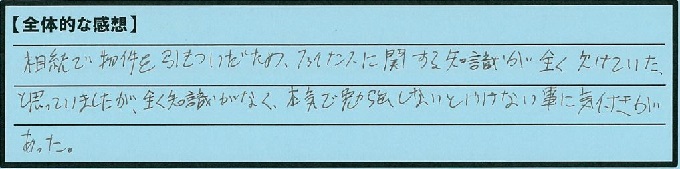 【全体的な感想】
相続で物件を引きついだため、ファイナンスに関する知識が全く欠けていた、
と思っていましたが、全く知識がなく、本気で勉強しないといけない事に気付きが
あった。